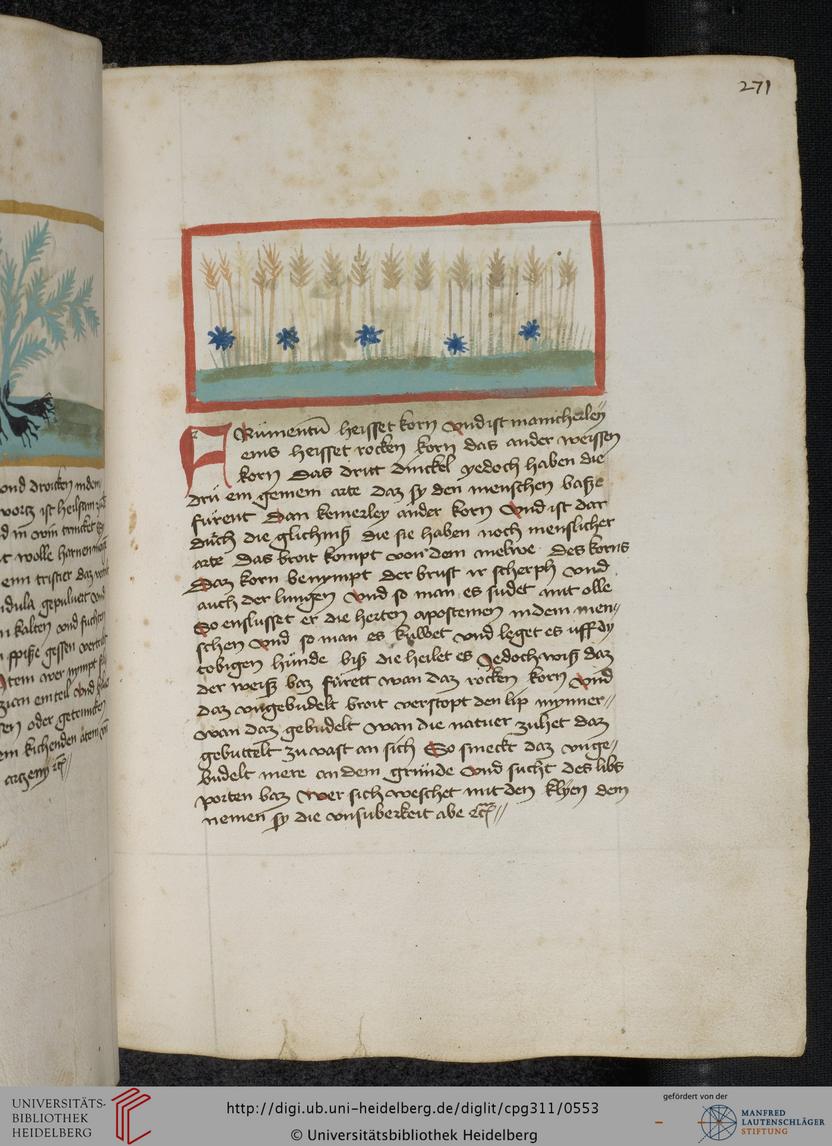 271
FRümentū heisset korn Vnd ist manicherley
eins heisset rocken korn das ander weissen
korn Das dritt dinckel yedoch haben die
drü ein gemein arte daz sy den menschen basze
fürent Dan keinerley ander korn Vnd ist dar
durch die glichniß die sie haben noch menslicher
arte das broit kompt von dem melwe des korns
Daz korn benympt der brust ir scherph vnd
auch der lungen Vnd so man es sudet mit olle
So enslusset er die herten apostemen in dem men//
schen Vnd so man es kuwet vnd leget es vff dy
tobigen hünde biß die heilet es Yedoch wiß daz
der weiß baz fürett wan daz rocken korn Vnd
daz vngebudelt broit verstopt den lip mynner//
wan daz gebudelt wan die natuer zuhet daz
gebuttelt zu vast an sich So smeckt daz vnge//
budelt mere an dem gründe Vnd sucht des libs
porten baz Wer sich weschet mit den klyen dem
nemen sy die vnsuberkeit abe etc̄//
vnd drocken in dem
wortz ist heilsam
in win
wolle harnen
enn tristier daz
idula gepuluert vnd
kalten vnd fuchten
spiße gessen
Item aver nympt
ein teil vnd
oder getruncken
kichenden atem
arczeny etc̄//
UNIVERSITÄTS-
BIBLIOTHEK
HEIDELBERG
http://digi.ub.uni-heidelberg.de/diglit/cpg311/0553
© Universitätsbibliothek Heidelberg
gefördert von der
MANFRED
LAUTENSCHLÄGER
STIFTUNG